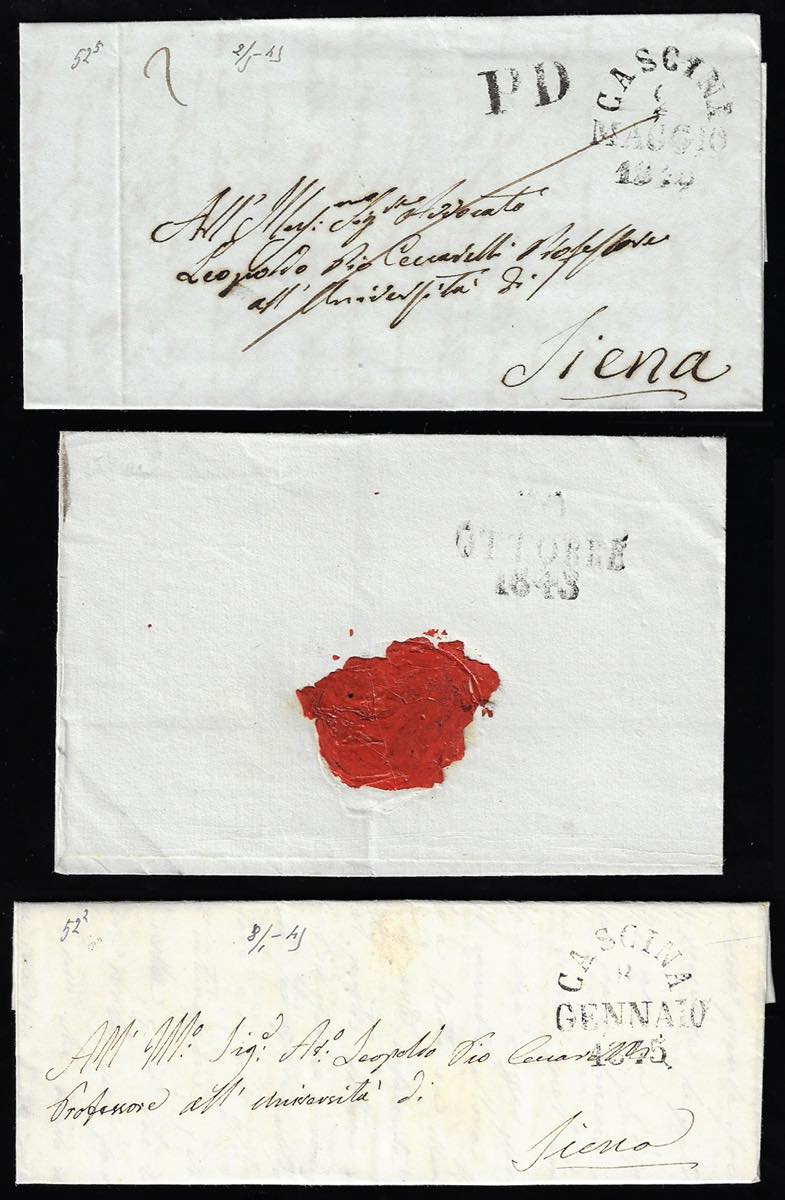 52⁵
2/5-45
P D
CASCINA
2
MAGGIO
184
All'
Leopoldo Pio Ceccarelli Professore
all' Università di
Siena
OTTOBRE
1843
52²
8/1-45
CASCINA
GENNAIO
1845
All' Mo. Sig.
Leopoldo Pio Ceccarelli
Professore all' Università di
Siena